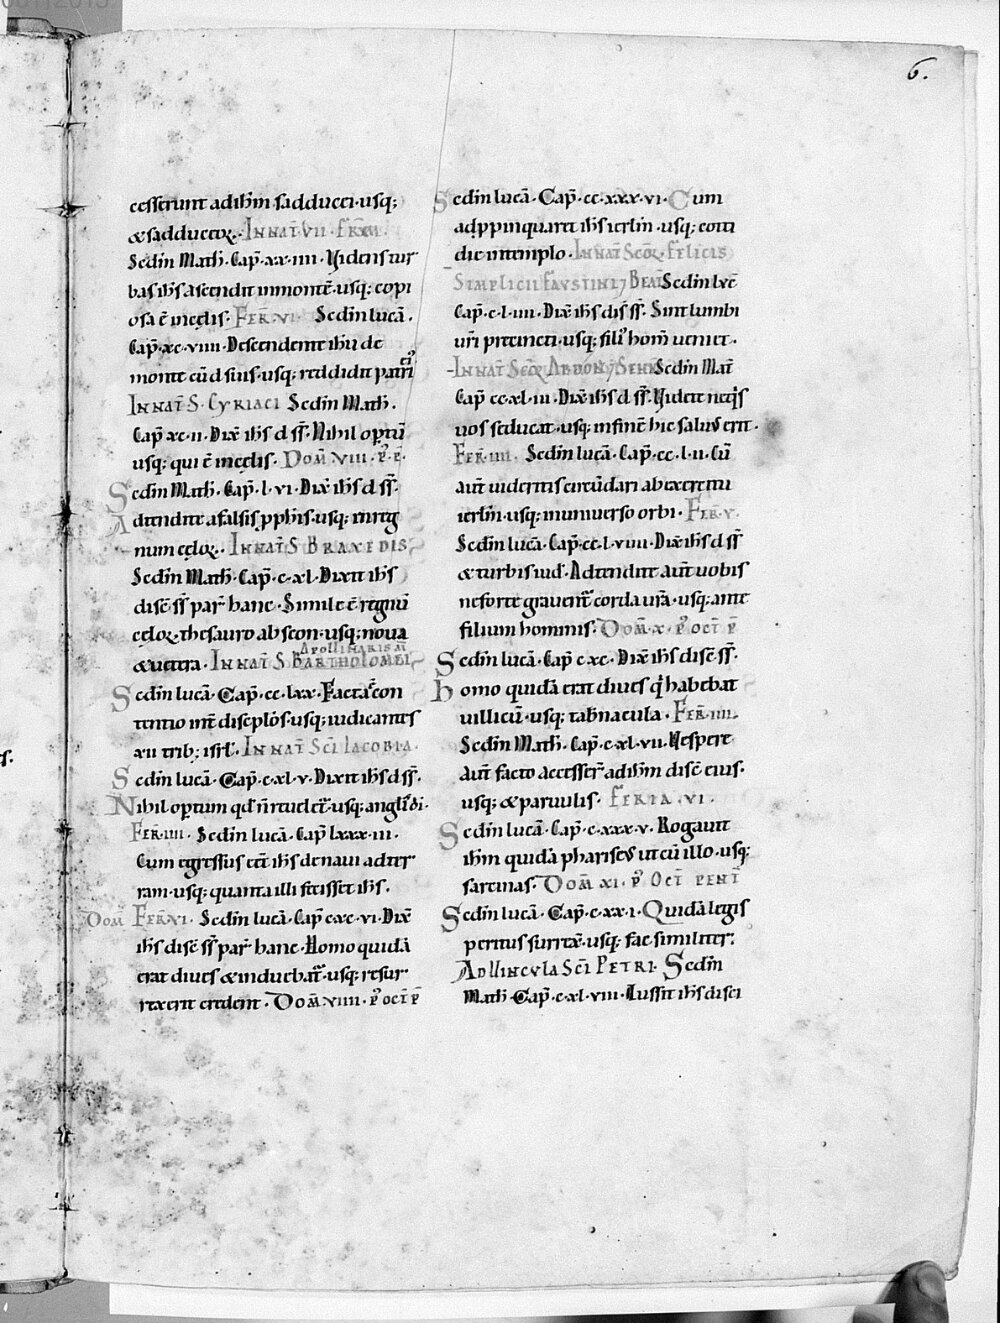 6.
cesserunt ad ihm̄ sadducei·usq;
& sadduceoꝝ. IN NAT̄ VII FRM̄
Sc̄dm Math̄· Cap̄·xx·iiii·Videns tur
bas ihs̄ ascendit in montē·usq; copi
osa ē in cęlis· FER̄·VI· Sc̄dm lucā·
Cap̄·xc·viiii·Descendente ihu de
monte cū d suis·usq; reddidit patri
ei᷒
IN NAT̄ S· CYRIACI Sc̄dm Math̄·
Cap̄ xc·ii·Dix̄ ihs̄ d sſ̄·Nihil optū
usq; qui ē in cęlis· DOM̄ VIII·P̄·P̄·
Sc̄dm Math̄· Cap̄· l·vi·Dix̄ ihs̄ d sſ̄·
Adtendite a falsis p̄phis·usq; in reg
num cęloꝝ· IN NAT̄ S BRAXEDIS,
Sc̄dm Math̄·Cap̄·c·xl·Dixit ihs̄
disc̄ sſ̄ par̄ hanc·Simile ē regnū
cęloꝝ·thesauro abscon·usq; noua
APOLLINARIS M̄
& uetera· IN NAT̄ S BARTHOLOMEI,
Sc̄dm lucā· Cap̄·cc·lxx·Facta ē con
tentio int̄ disciplōs·usq; iudicantes
xii trib; isrl̄· IN NAT̄ SC̄I IACOBI A·
Sc̄dm lucā· Cap̄·c·xl·v·Dixit ihs̄ d sſ̄·
Nihil opertum qd n̄ reueler̄·usq; angl̄i dī·
FER̄·IIII· Sc̄dm lucā· Cap̄ lxxx·iii·
Cum egressus eēt ihs̄ de naui ad ter
ram·usq; quanta illi fecisset ihs̄·
DOM̄ FER̄·VI· Sc̄dm lucā·Cap̄ c·xc·vi·Dix̄
ihs̄ disc̄ sſ̄ par̄ hanc·Homo quidā
erat diues & induebat̄·usq; resur
rexerit credent· DOM̄ VIIII·P̄ OCT̄ P̄
Sc̄dm lucā· Cap̄· cc·xxx·vi· Cum
adppinquaret ihs̄ ierl̄m·usq; coti
die in templo· IN NAT̄ SCOꝝ FELICIS
SIMPLICII FAUSTINI ⁊ BEAT̄ Sc̄dm luc̄
Cap̄·c·l·iiii·Dix̄ ihs̄ dis̄ sſ̄· Sint lumbi
ur̄i precincti·usq; fili᷒ hom̄ ueniet·
IN NAT̄ SCOꝝ ABDON ⁊ SENN̄ Sc̄dm Mat̄
Cap̄ cc·xl·iii·Dix̄ ihs̄ d sſ̄·Videte neqͥs
uos seducat·usq; in finē hic saluꝰ erit·
FER̄·IIII· Sc̄dm lucā· Cap̄·cc·l·ii·Cū
aūt uideritis circūdari ab exercitu
ierl̄m·usq; in uniuerso orbi· FER̄·V·
Sc̄dm lucā·Cap̄·cc·l·viiii·Dix̄ ihs̄ d sſ̄
& turbis iud̄·Adtendite aūt uobis
ne forte grauent̄ corda ur̄a·usq; ante
filium hominis· DOM̄·X·P̄ OCT̄ P̄
Sc̄dm lucā·Cap̄ c·xc·Dix̄ ihs̄ disc̄ sſ̄·
Homo quidā erat diues qͥ habebat
uillicū·usq; tab̄nacula· FER̄·IIII·
Sc̄dm Math̄· Cap̄·c·xl·vii·Uespere
aūt facto accesser̄ ad ihm̄ disc̄ eius·
usq; & paruulis· FERIA·VI·
Sc̄dm lucā·Cap̄·c·xxx·v·Rogauit
ihm̄ quidā phariseꝰ ut cū illo·usq;
farinas· DOM̄ XI· P̄ OCT̄ PENT̄
Sc̄dm lucā·Cap̄·c·xx·i·Quidā legis
peritus surrex̄·usq; fac similiter·
AD UINCULA SC̄I PETRI· Sc̄dm
Math̄· Cap̄·c·xl·viii·Iussit ihs̄ disci